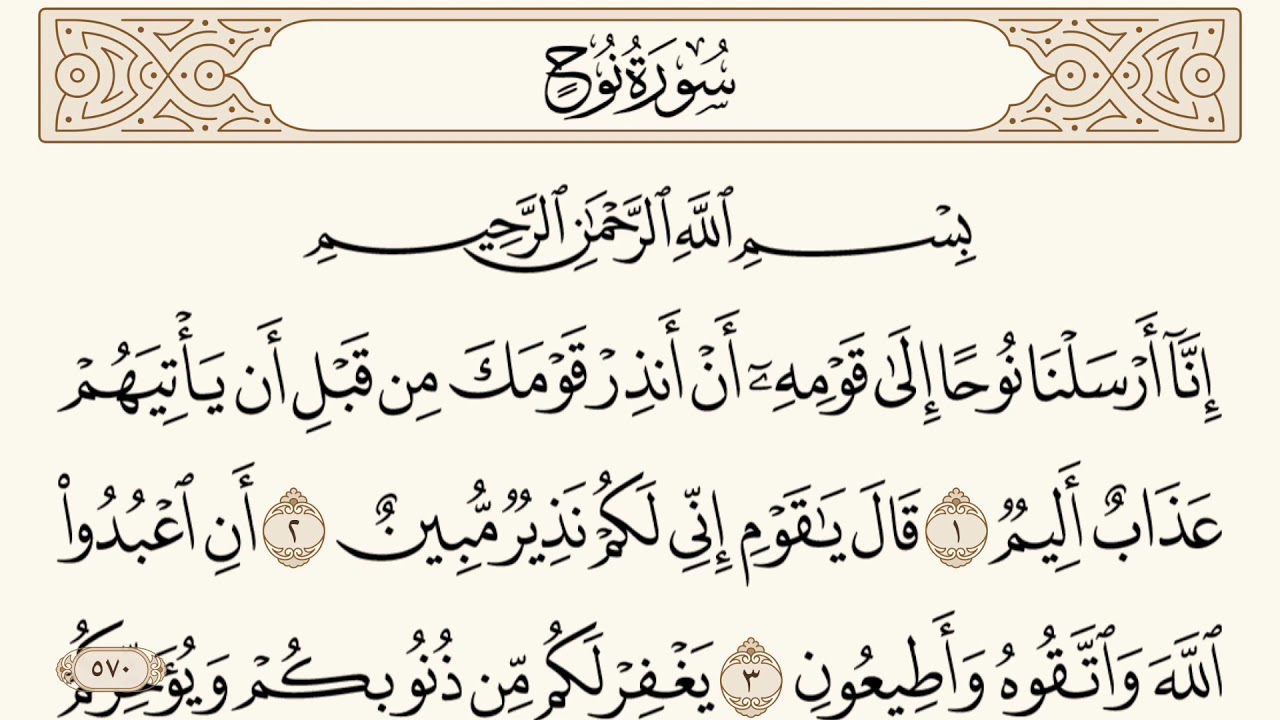 سُورَةُ نُوحٍ
بِسْمِ ٱللَّهِ ٱلرَّحْمَٰنِ ٱلرَّحِيمِ
إِنَّآ أَرْسَلْنَا نُوحًا إِلَىٰ قَوْمِهِۦٓ أَنْ أَنذِرْ قَوْمَكَ مِن قَبْلِ أَن يَأْتِيَهُمْ
عَذَابٌ أَلِيمٌ ١ قَالَ يَٰقَوْمِ إِنِّي لَكُمْ نَذِيرٌ مُّبِينٌ ٢ أَنِ ٱعْبُدُوا۟
ٱللَّهَ وَٱتَّقُوهُ وَأَطِيعُونِ ٣ يَغْفِرْ لَكُم مِّن ذُنُوبِكُمْ وَيُؤَخِّرْكُمْ
٥٧٠